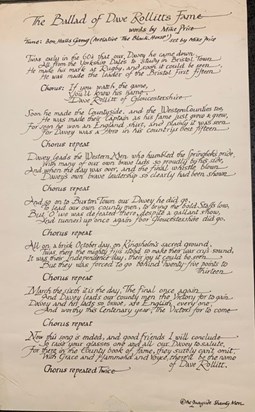 The Ballad of Dave Rollitt's Fame
words by Mike Price
Tune: Ben Hall's Gang (
"The Black Horse") arr by Mike Price
'Twas early in the 60's that our Davey he came down
All from the Yorkshire Dales to study in Bristol Town
He made his mark at Rugby, and soon it could be seen
He was made the leader of the Bristol First Fifteen
Chorus: If you watch the game,
You'll know his fame,
Dave Rollitt of Gloucestershire
Soon he made the Countyside, and the Western Counties too
He was made their Captain as his fame just grew & grew,
For soon he won an England shirt, and
For Davey was a Hero in his countrys own fifteen
Chorus repeat
Davey leads the Western Men who humbled the Springboks pride,
With many of our own brave lads so proudly by his side,
And when the day was over, and the final whistle blown
Davey's own brave leadership so clearly had been shown.
Chorus repeat
And so on to Burton Town our Davey he did go,
To lead our own county men, to bring the bold Staffs low,
But O! we was defeated there, despite a gallant show,
And runners up once again poor Gloucestershire did go,
Chorus repeat
All on a bleak October day, on Kingsholm's sacred ground,
Fiji they mighty men stood to make their war cry sound,
It was their Independence day, their joy it could be seen
But they was forced to go behind twenty five points to
thirteen
Chorus repeat
March the sixth it is the day, The final once again
And Davey leads our county men the victory for to gain
Davey and her lads so brave, are English, every one
And worthy this Centenary year, the Victory for to come
Chorus repeat
Now this song is ended, and good friends I will conclude
So raise your glasses one and all, our Davey to salute,
For there in the County book of fame, they surely can't omit,
With Grace and Hammond and Voyce, there'll be the name
of Dave Rollitt.
Chorus repeated twice
Shanty Men